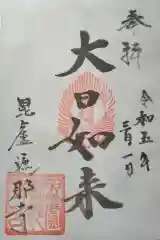 奉拝
令和五年
三月一日
大日如来
毘盧遮
那寺